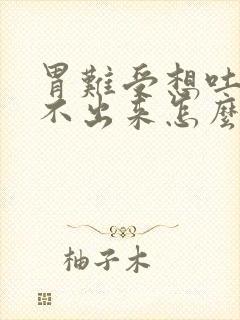 胃難受想吐
不出來怎麼
柚子木